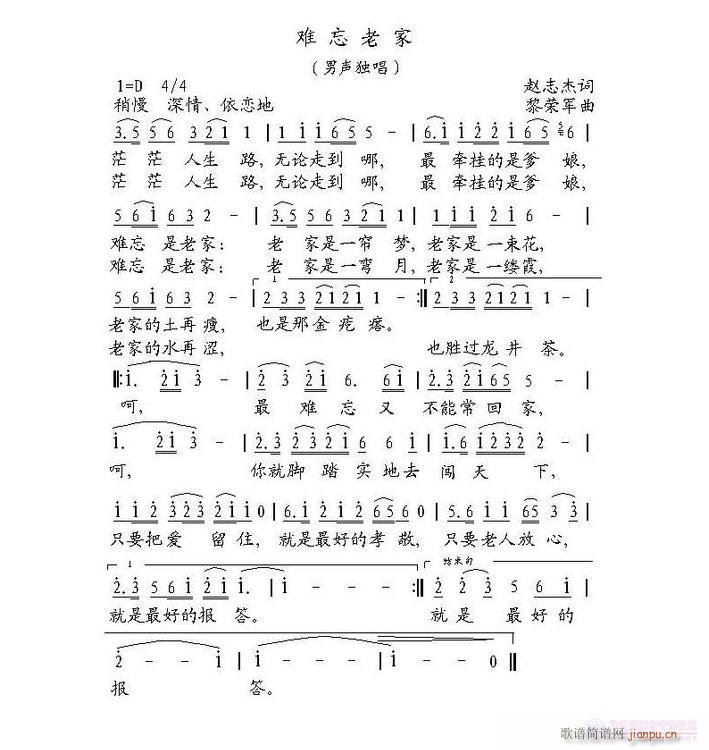 难忘老家
（男声独唱）
1=D 4/4 赵志杰词
稍慢 深情、依恋地 黎荣军曲
3.5 5 6 3 2 1 1 | 1. 1 1 1 6 5 5 - | 6. i 2 2 i 6 5 6 |
茫茫 人生 路，无论走到 哪， 最 牵挂的是爹 娘，
茫茫 人生 路，无论走到 哪， 最 牵挂的是爹 娘，
5 6 i 6 3 2 - | 3. 5 5 5 6 2 2 1 | 1 i i i 2 i 6 - |
难忘 是老家； 老 家是一帘 梦，老家是 一束花，
难忘 是老家； 老 家是一弯 月，老家是 一缕霞，
5 6 i 6 3 2 - | 1 2 3 3 2 1 2 1 1 - :‖ 2 2 3 3 2 1 2 1 1 - |
老家的土再瘦， 也是那金疙瘩。
老家的水再涩， 也胜过龙井茶。
‖: i. 2 i 3 - | 2 3 2 i 6. 6 i | 2. 3 2 i 6 5 5 - |
呵， 最 难忘 又 不能常回家，
i. 2 i 3 - | 2. 3 2 3 2 i 6 6 5 | i. 6 i 2 3 2 2 - |
呵， 你就脚 踏 实地去 闯 天 下，
i i i 2 3 2 3 2 i i 0 | 6. i 2 i 2 6 5 6 0 | 5. 6 i i 2 3 3 - |
只要把爱 留 住，就是最好的孝 敬，只要老人放心，
1 结束句
2. 3 5 6 i 2 i i. i | i - - - :‖ 2 2 3 5 6 i |
就是最好的报 答。 就 是 最 好 的
2 - - i | i - - - | i - - 0 ‖
报 答。
歌谱简谱网 jianpu.cn